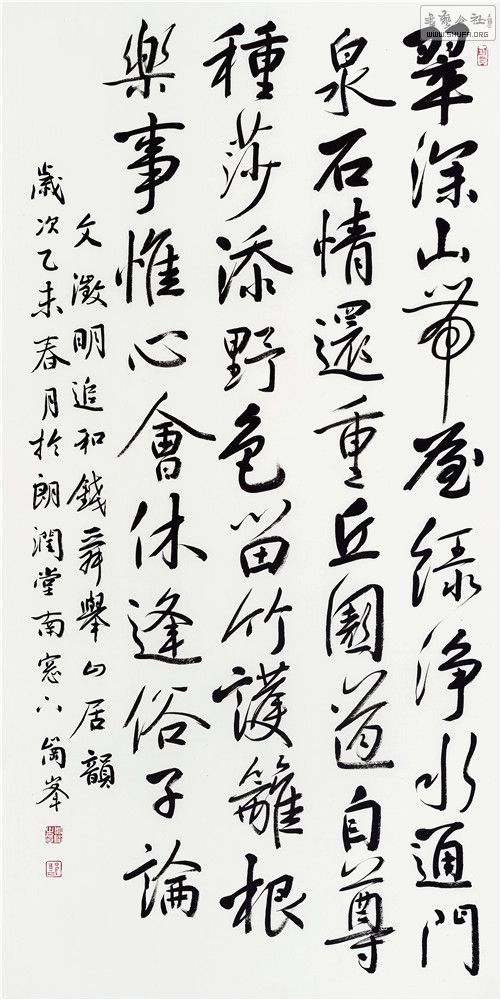 翠深山帶屋綠淨水通門
泉石情還重丘園道自尊
種莎添野色留竹護籬根
樂事惟心會休逢俗子論
文澂明追和錢舜舉山居韻
歲次乙未春月於朗潤堂南窓下崗峯
書藝公社
WWW.SHUFA.ORG